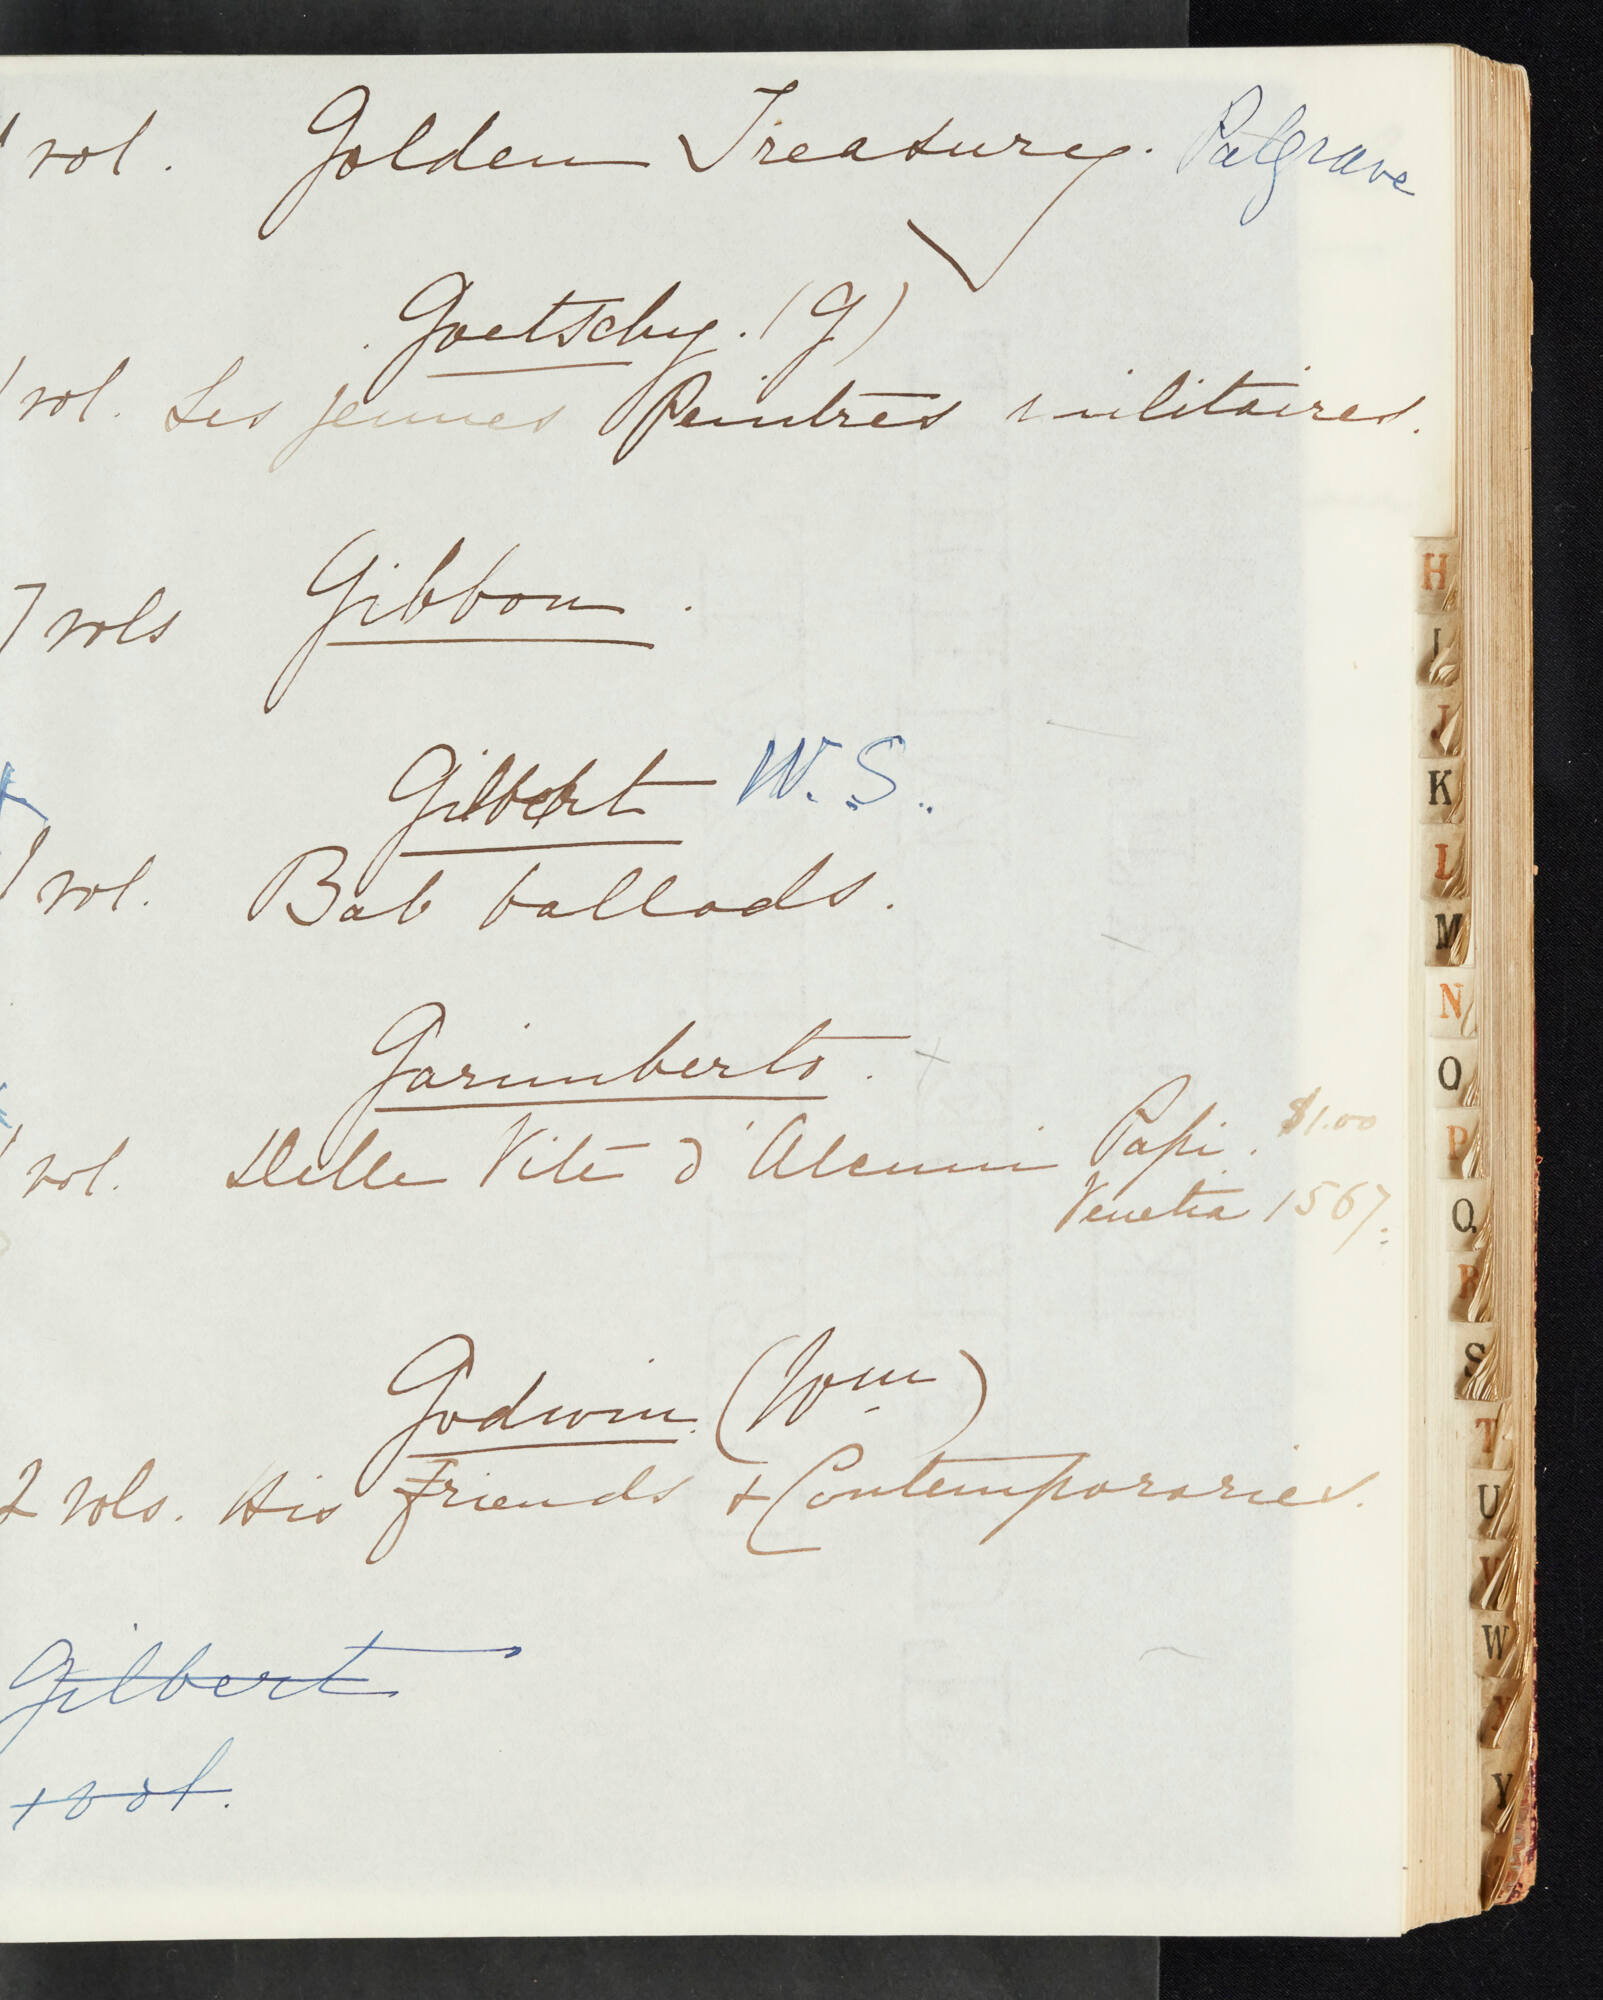 1 vol. Golden Treasury. Palgrave
Goetschy. (G)
1 vol. Les jeunes Peintres militaires.
7 vols Gibbon.
Gilbert W. S.
1 vol. Bab ballads.
Garimberto.
1 vol. Delle Vite d'Alcuni Papi. $1.00
Venetia 1567.
Godwin. (Wm)
2 vols. His Friends & Contemporaries.
Gilbert
1 vol.
H
I
J
K
L
M
N
O
P
Q
R
S
T
U
V
W
X
Y